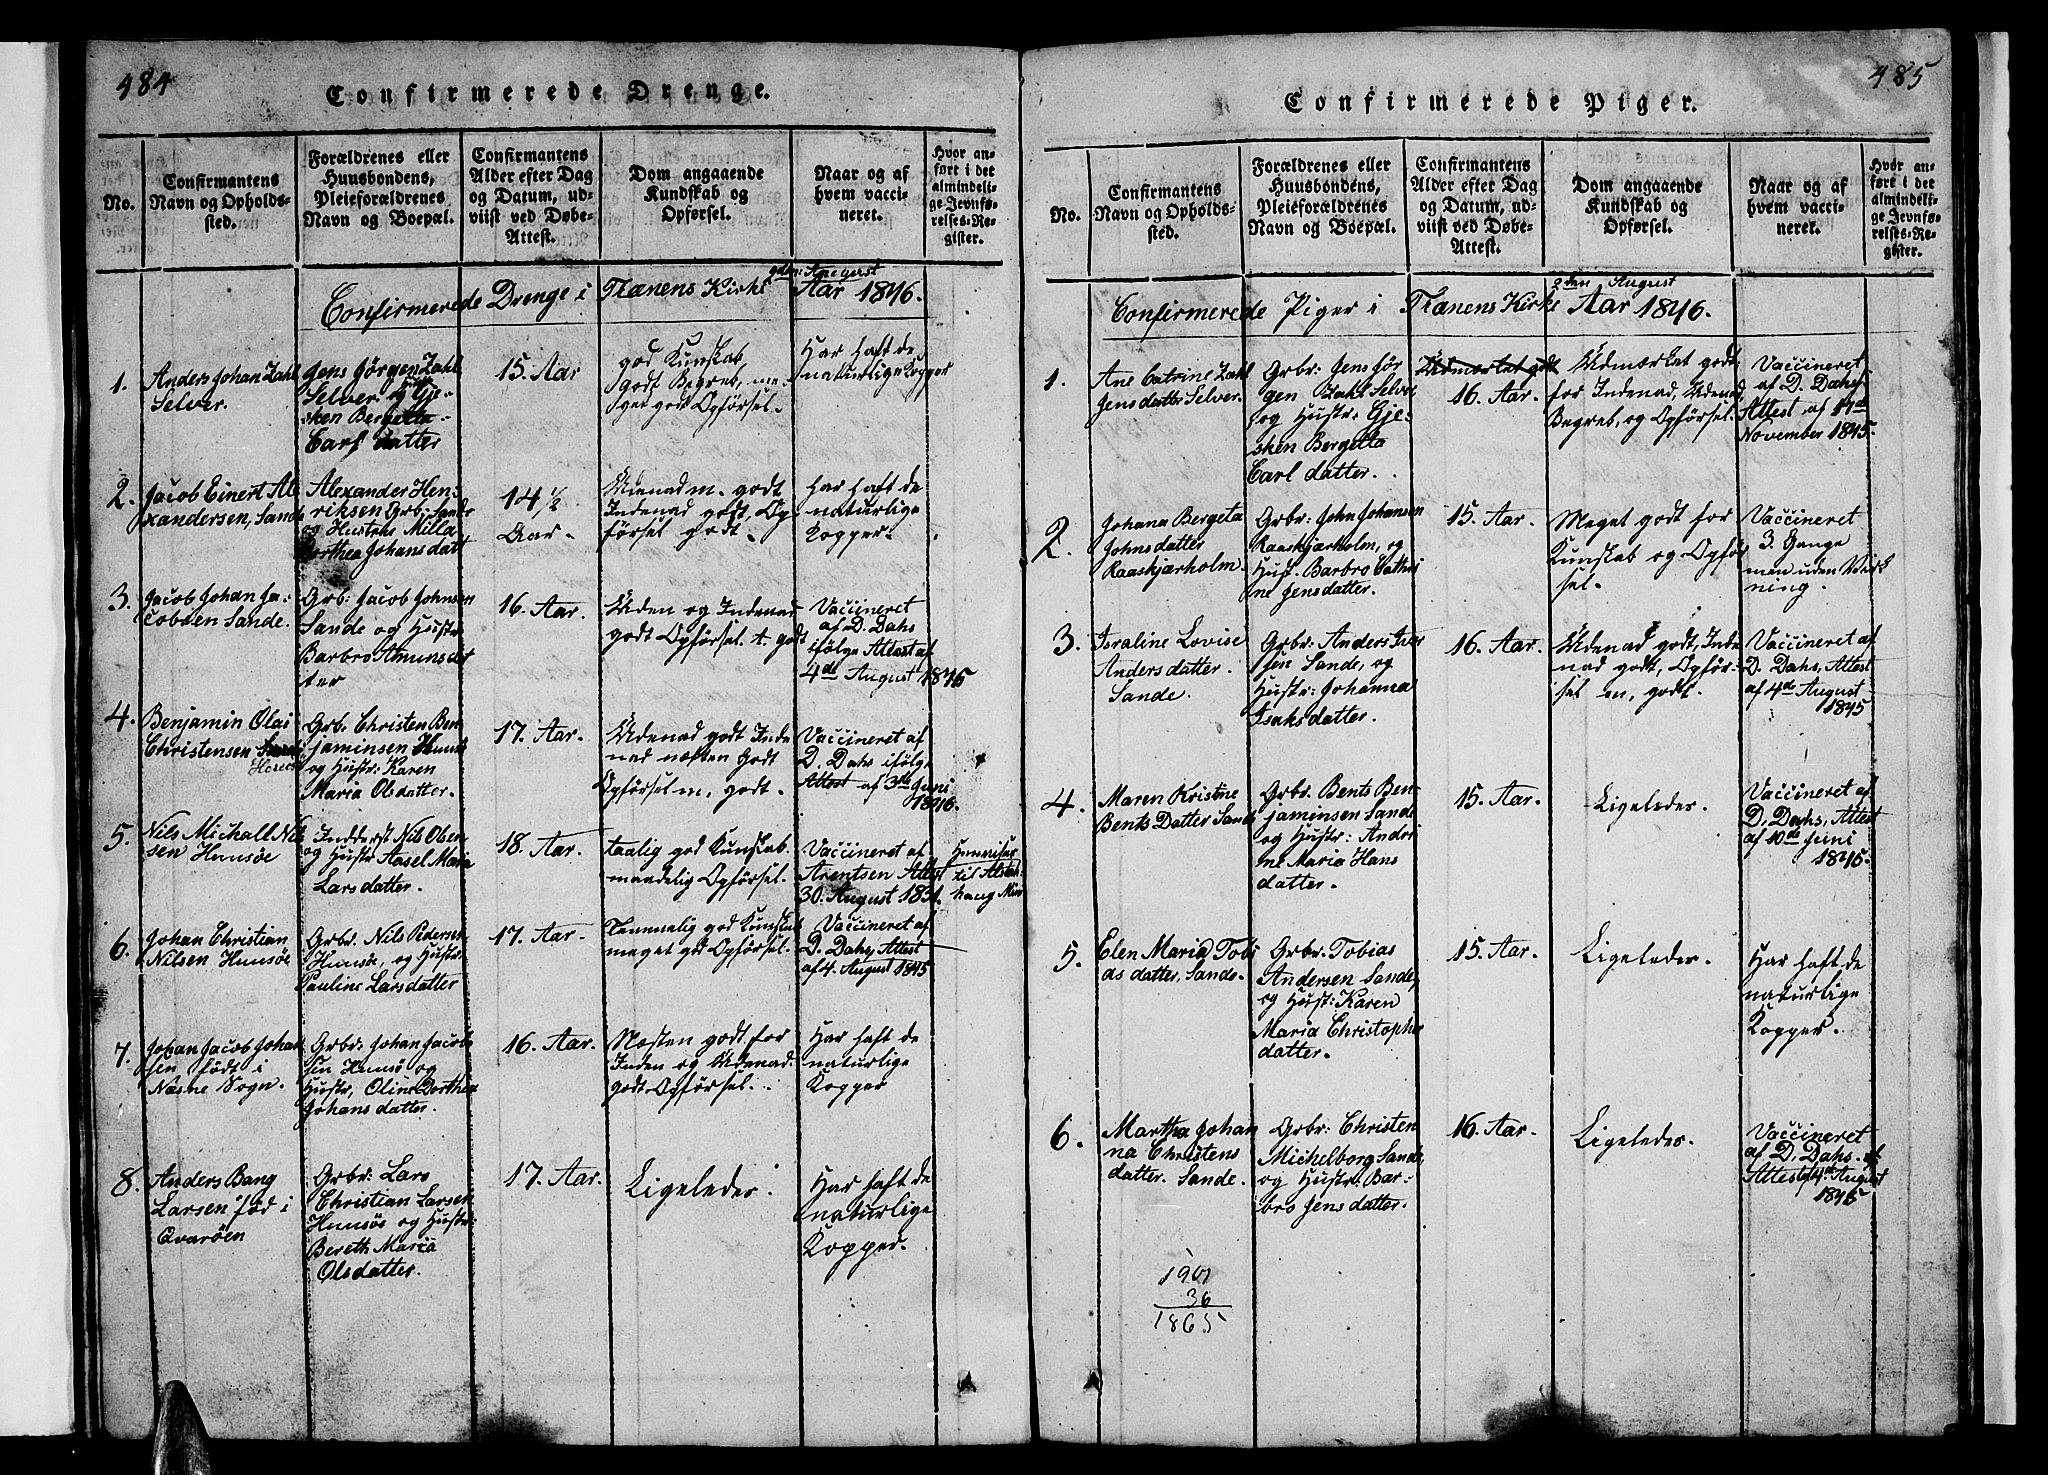 484
Confirmerede Drenge.
No.
Confirmantens
Navn og Opholds-
sted.
Forældrenes eller
Huusbondens,
Pleieforældrenes
Navn og Boepæl.
Confirmantens
Alder efter Dag
og Datum, ud-
viist ved Døbe-
Attest.
Dom angaaende
Kundskab og
Opførsel.
Naar og af
hvem vacci-
neret.
Hvor an-
ført i det
almindeli-
ge Jevnfø-
relses-Re-
gister.
Confirmerede Drenge i Trænens Kirke Aar 1846.
1.
Anders Johan Zahl
Selver.
Jens Jörgen Zahl
Selver og
Gje-
sken Bergetta
Carl datter
15. Aar
god Kunskab,
godt Begreb, me-
get godt Opförsel.
Har haft de
naturlige Kopper
2.
Jacob Einert Ale
xandersen, Sande
Alexander Hen-
riksen Grb: Sande
og Hustru Milla
Dorthea Johans datt
14 1/2
Aar.
Udenad m. godt
Indenad godt, Op
försel godt.
Har haft de
naturlige
Kopper.
3.
Jacob Johan Ja-
cobsen Sande.
Grb: Jacob Johnsen
Sande og Hustr:
Barbro Amunsdat
ter
16. Aar.
Uden og Indenad
godt Opförsel t. godt
Vaccineret
af D. Dahs
ifölge Attest af
4de August 1845
4.
Benjamin Olai
Christensen
Grb. Christen Ben
jaminsen Huusö
og Hustr: Karen
Maria Olsdatter.
17. Aar.
Udenad godt Inde
nad næsten Godt
Opförsel m. godt.
Vaccineret af
D. Dahs ifölge
Attest af 3de Juni
1846.
5.
Nils Michall Nil
sen Huusöe
Inderst Nils Olsen
og Hustr Aasel Maria
Lars datter.
18. Aar.
taalig god Kunskab
maadelig Opförsel.
Vaccineret af
Arentsen Attest
30. August 1831.
Henviser
til Alstah
haug Min
6.
Johan Christian
Nilsen Huusöe
Grbr. Nils Pedersen
Huusöe, og Hustr:
Pauline Larsdatter
17. Aar.
Temmelig god Kunskab
meget god Opförsel.
Vaccineret af
D. Dahs, Attest
af 4. August 1845
7.
Johan Jacob Johan
sen födt i
Næsne Sogn.
Grbr: Johan Jacob
sen Huusö og
Hustr, Oline Dorthea
Johans datter.
16. Aar.
Næsten godt for
Inden og Udenad.
godt Opförsel.
Har haft de
naturlige
Kopper
8.
Anders Bang
Larsen föd i
Qvaröen
Grbr: Lars
Christian Larsen
Huusöe og Hustr:
Bereth Maria
Olsdatter.
17. Aar.
Ligeledes.
Har haft de
naturlige
Kopper.
485
Confirmerede Piger.
No.
Confirmantens
Navn og Opholds-
sted.
Forældrenes eller
Huusbondens,
Pleieforældrenes
Navn og Boepæl.
Confirmantens
Alder efter Dag
og Datum, ud-
viist ved Døbe-
Attest.
Dom angaaende
Kundskab og
Opførsel.
Naar og af
hvem vacci-
neret.
Hvor an-
ført i det
almindeli-
ge Jevnfø-
relses-Re-
gister.
August
Confirmerede Piger i Trænens Kirke Aar 1846.
1.
Ane Catrine Zahl
Jens datter Selver.
Grbr: Jens Jör
gen Zahl Selver
og Hustr: Gje-
sken Bergetta
Carl datter.
16. Aar.
Udmærket godt
for Indenad, Udenad,
Begreb, og Opförsel.
Vaccineret
af D. Dahs,
Attest af 17de
November 1845.
2.
Johana Bergeta
Johns datter
Raaskjærholm.
Grbr: John Johansen
Raaskjærholm, og
Hust. Barbro Cathri
ne Jens datter.
15. Aar.
Meget godt for
Kunskab og Opför
sel.
Vaccineret
3. Gange
men uden Virk
ning.
3.
Israline Lovise
Anders datter.
Sande.
Grbr: Anders Iver
sen Sande, og
Hustr: Johanna
Isaks datter.
16. Aar.
Udenad godt, Inde
nad godt, Opför-
sel m. godt.
Vaccineret af
D. Dahs, Attest
af 4de August
1845
4.
Maren Kristine
Bents Datter Sande
Grbr. Bents Ben-
jaminsen Sande
og Hustr: Andri
ne Maria Hans
datter.
15. Aar.
Ligeledes.
Vaccineret af
D. Dahs, Attest
af 10de Juni
1845.
5.
Elen Maria Tobi
as datter, Sande.
Grbr. Tobias
Andersen Sande,
og Hustr: Karen
Maria Christophe
datter.
15. Aar.
Ligeledes.
Har haft de
naturlige
Kopper.
6.
Martha Johan
na Christens
datter. Sande.
Grbr: Christen
Michelborg Sande,
og Hustr: Bar-
bro Jens datter.
16. Aar.
Ligeledes.
Vaccineret
af D. Dahs. af
Attest 4de August
1845
1901
36
1865